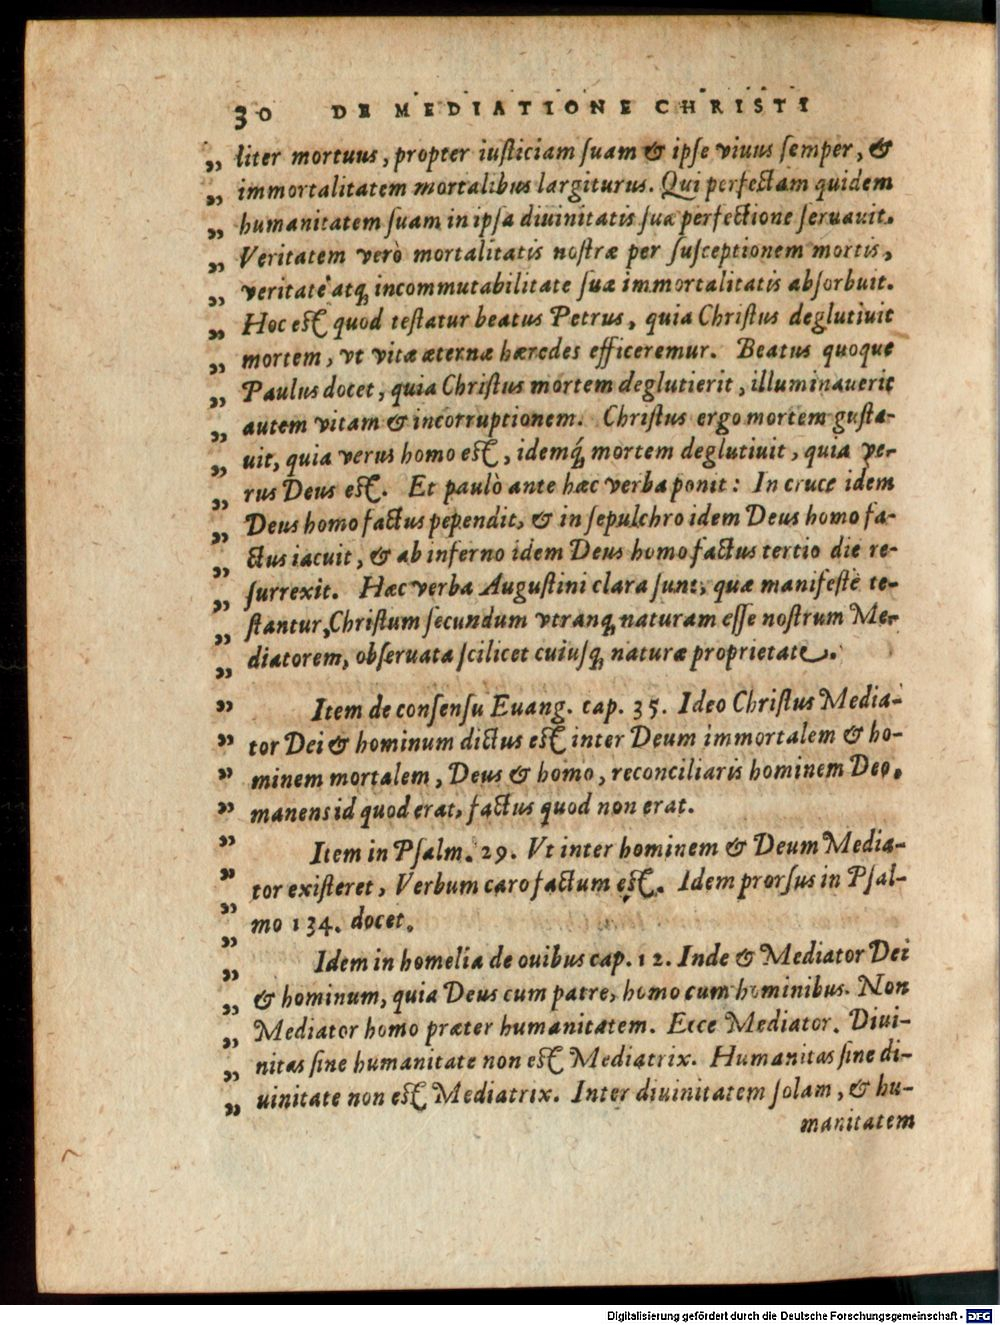 30 DE MEDIATIONE CHRISTI
„ liter mortuus, propter iusticiam suam & ipse viuus semper, &
„ immortalitatem mortalibus largiturus. Qui perfectam quidem
„ humanitatem suam in ipsa diuinitatis suæ perfectione seruauit.
„ Veritatem verò mortalitatis nostræ per susceptionem mortis,
„ veritate atq; incommutabilitate suæ immortalitatis absorbuit.
„ Hoc est quod testatur beatus Petrus, quia Christus deglutiuit
„ mortem, vt vitæ æternæ hæredes efficeremur. Beatus quoque
„ Paulus docet, quia Christus mortem deglutierit, illuminauerit
„ autem vitam & incorruptionem. Christus ergo mortem gusta-
„ uit, quia verus homo est, idemq́; mortem deglutiuit, quia ve-
„ rus Deus est. Et paulò ante hæc verba ponit: In cruce idem
„ Deus homo factus pependit, & in sepulchro idem Deus homo fa-
„ ctus iacuit, & ab inferno idem Deus homo factus tertio die re-
„ surrexit. Hæc verba Augustini clara sunt, quæ manifestè te-
„ stantur, Christum secundum vtranq; naturam esse nostrum Me-
„ diatorem, obseruata scilicet cuiusq; naturæ proprietate.
„ Item de consensu Euang. cap. 35. Ideo Christus Media-
„ tor Dei & hominum dictus est inter Deum immortalem & ho-
„ minem mortalem, Deus & homo, reconciliaris hominem Deo,
„ manens id quod erat, factus quod non erat.
„ Item in Psalm. 29. Vt inter hominem & Deum Media-
„ tor existeret, Verbum caro factum est. Idem prorsus in Psal-
„ mo 134. docet.
„ Idem in homelia de ouibus cap. 12. Inde & Mediator Dei
„ & hominum, quia Deus cum patre, homo cum hominibus. Non
„ Mediator homo præter humanitatem. Ecce Mediator. Diui-
„ nitas sine humanitate non est Mediatrix. Humanitas sine di-
„ uinitate non est Mediatrix. Inter diuinitatem solam, & hu-
manitatem
Digitalisierung gefördert durch die Deutsche Forschungsgemeinschaft - DFG